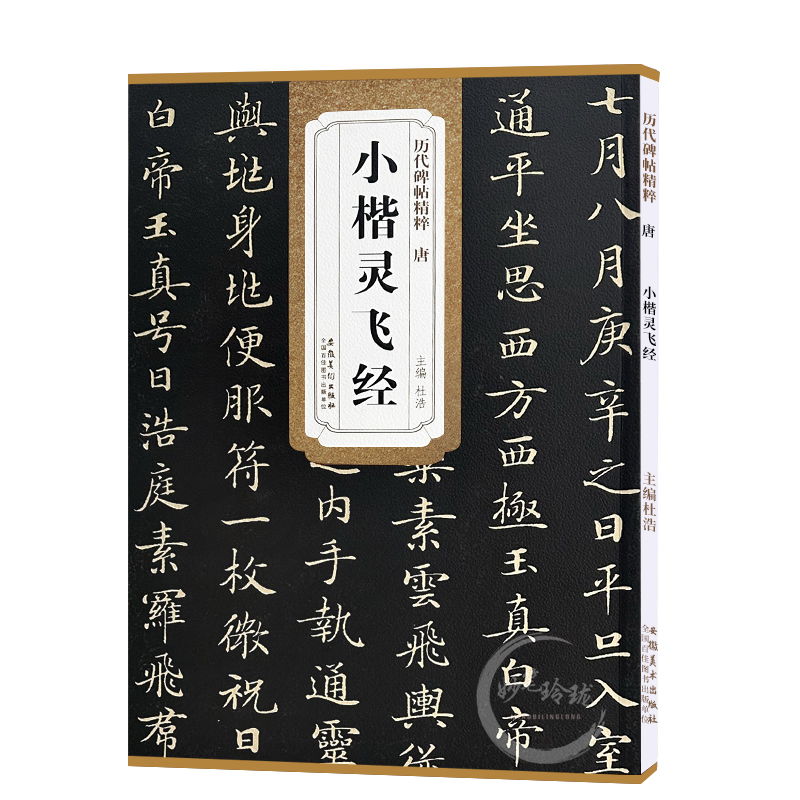 七月八月庚辛之日平旦入室
通平坐思西方西極玉真白帝
素雲飛輿從
内手執通靈
與兆身兆便服符一枚微祝曰
白帝玉真号曰浩庭素羅飛帬
历代碑帖精粹 唐
小楷灵飞经
主编 杜浩
安徽美术出版社
全国百佳图书出版单位
历代碑帖精粹 唐 小楷灵飞经 主编 杜浩
安徽美术出版社
全国百佳图书出版单位
妙笔玲珑